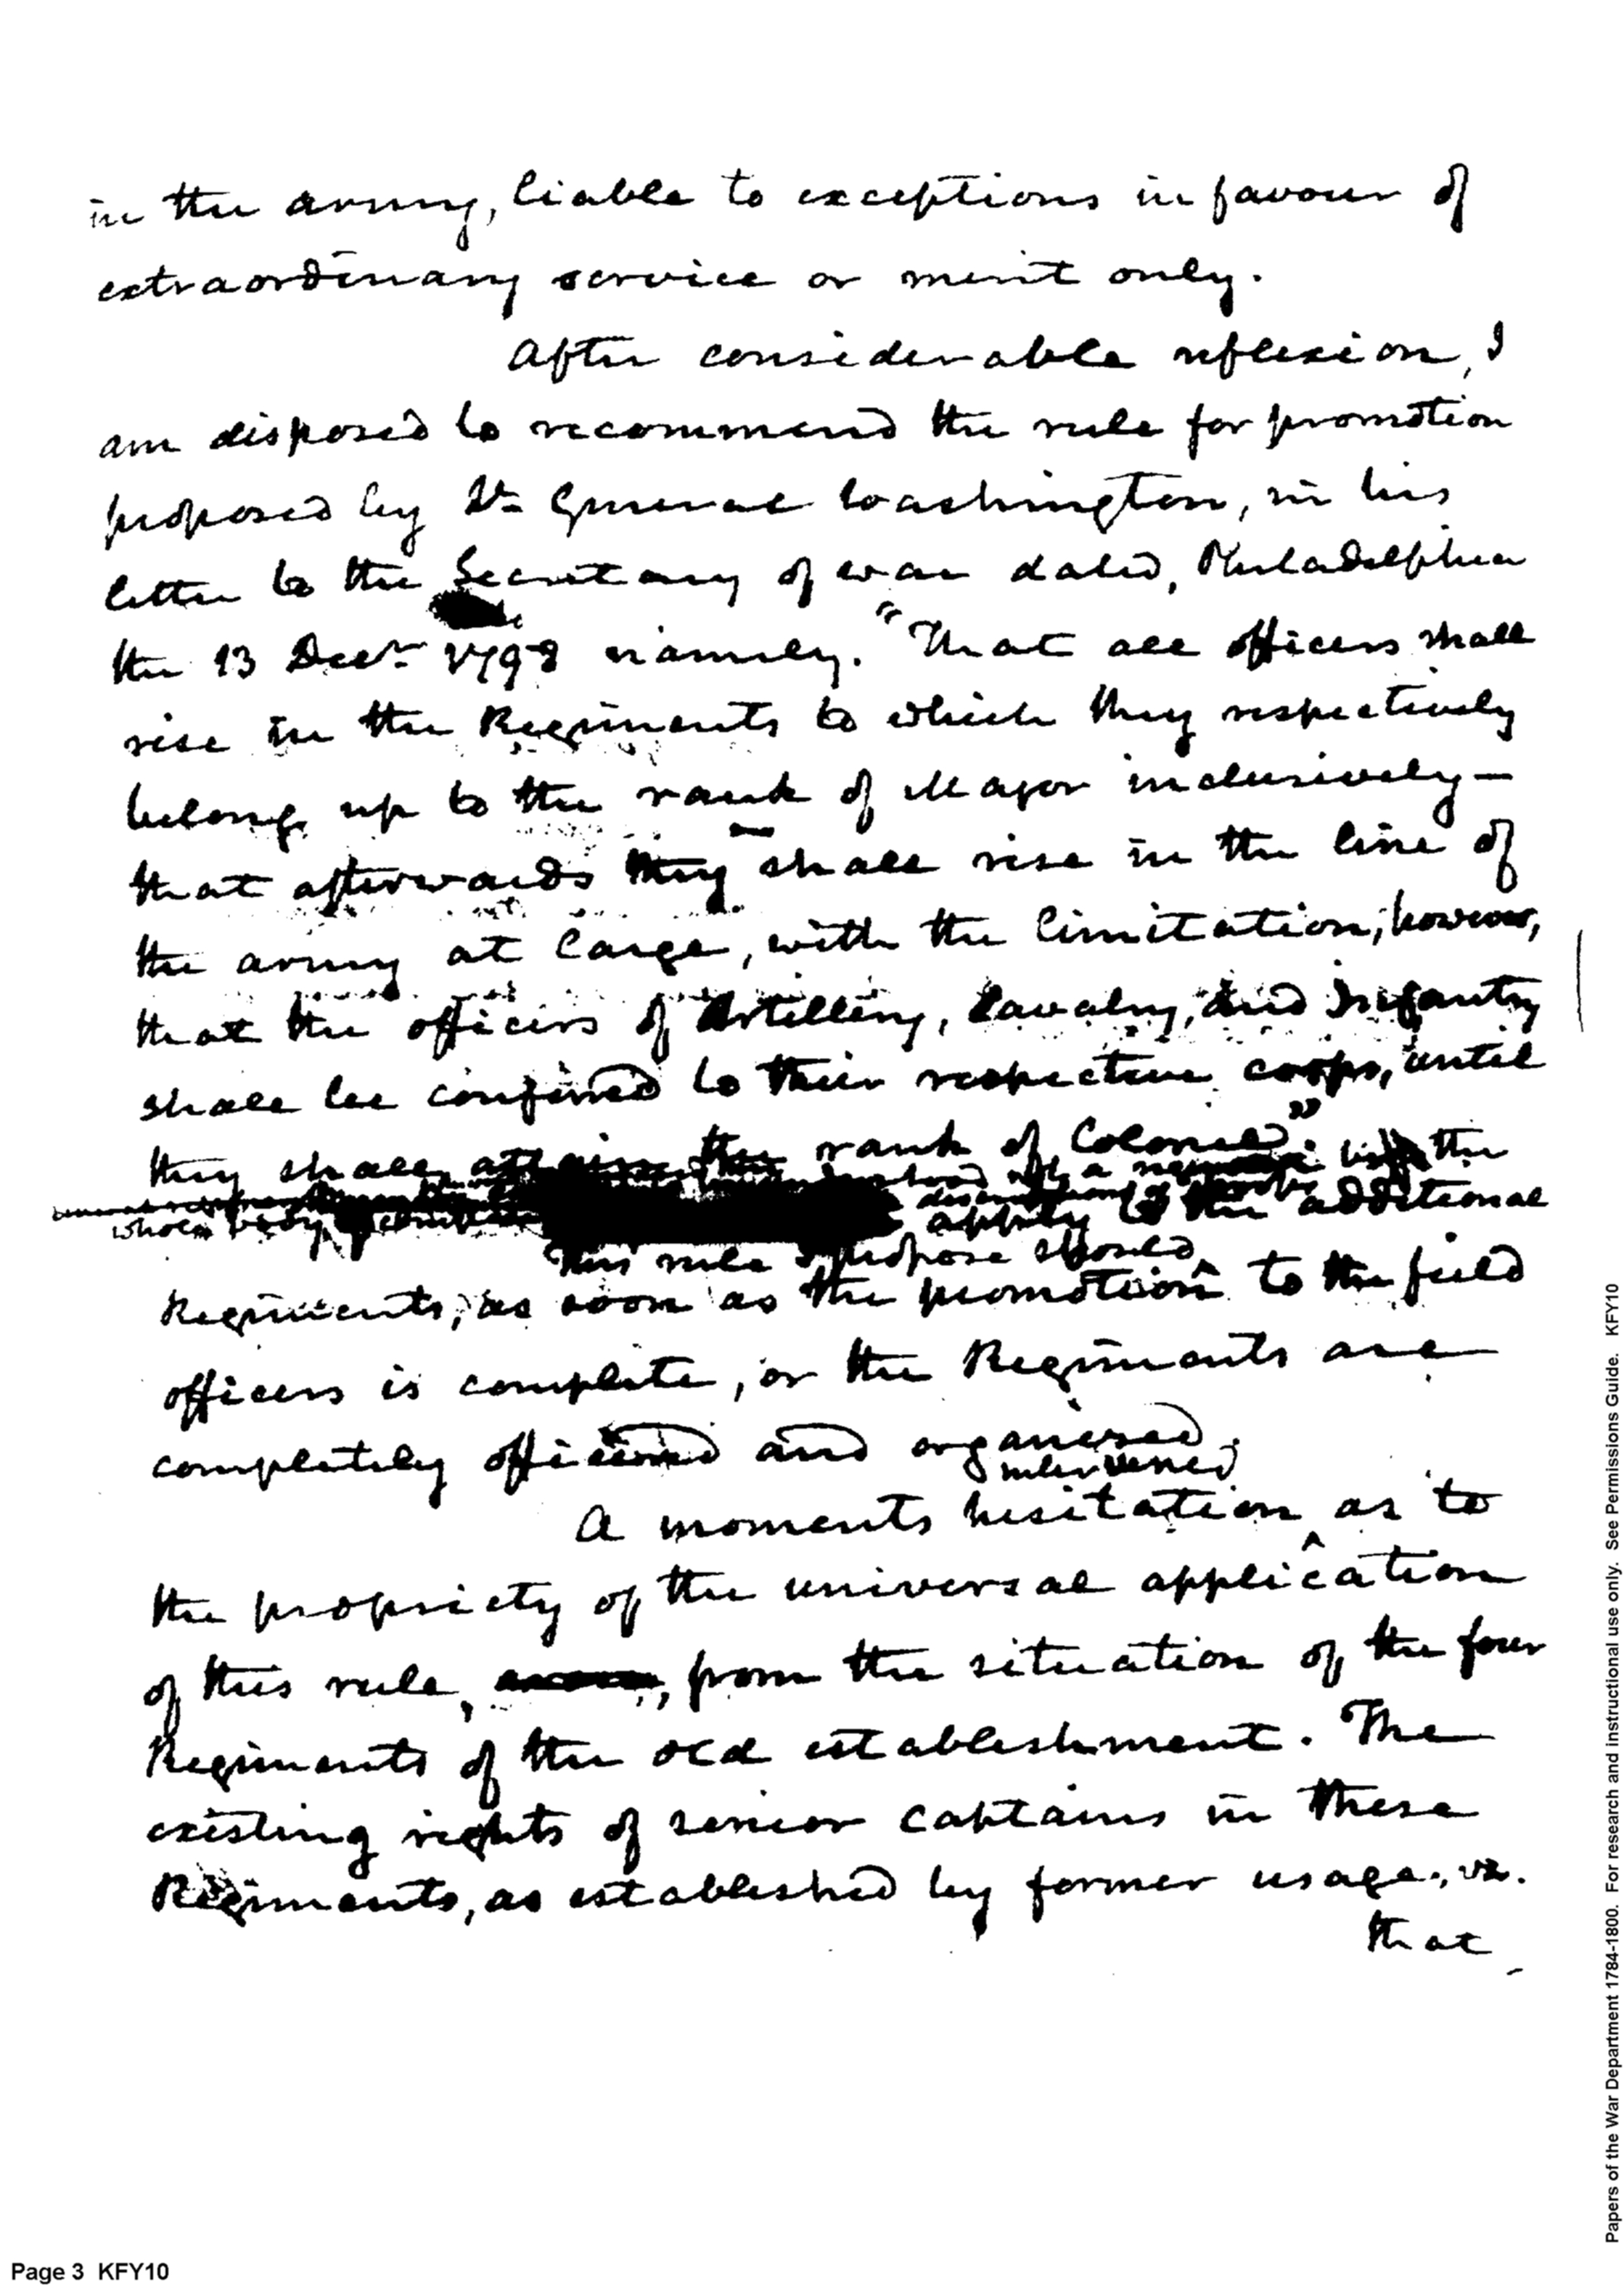 in the army, liable to exceptions in favour of
extraordinary service or merit only.
After considerable reflexion, I
am disposed to recommend the rule for promotion
proposed by Lt General Washington, in his
letter to the Secretary of war dated, Philadelphia
the 13 Decr 1798 namely. "That all officers shall
rise in the Regiments to which they respectively
belong, up to the rank of Major inclusively—
that afterwards they shall rise in the line of
the army at large, with the limitation, however,
that the officers of Artillery, Cavalry, and Infantry
shall be confined to their respective corps, until
they shall attain the rank of Colonel".
whole body
the
apply to the additional
This rule I propose should
Regiments, as soon as the promotion to the field
officers is complete, or the Regiments are
completely officered and organised.
intervened
A moments hesitation as to
the propriety of the universal application
of this rule, from the situation of the four
Regiments of the old establishment. The
existing rights of senior captains in these
Regiments, as established by former usage, vz.
that
Page 3 KFY10
Papers of the War Department 1784-1800. For research and instructional use only. See Permissions Guide. KFY10